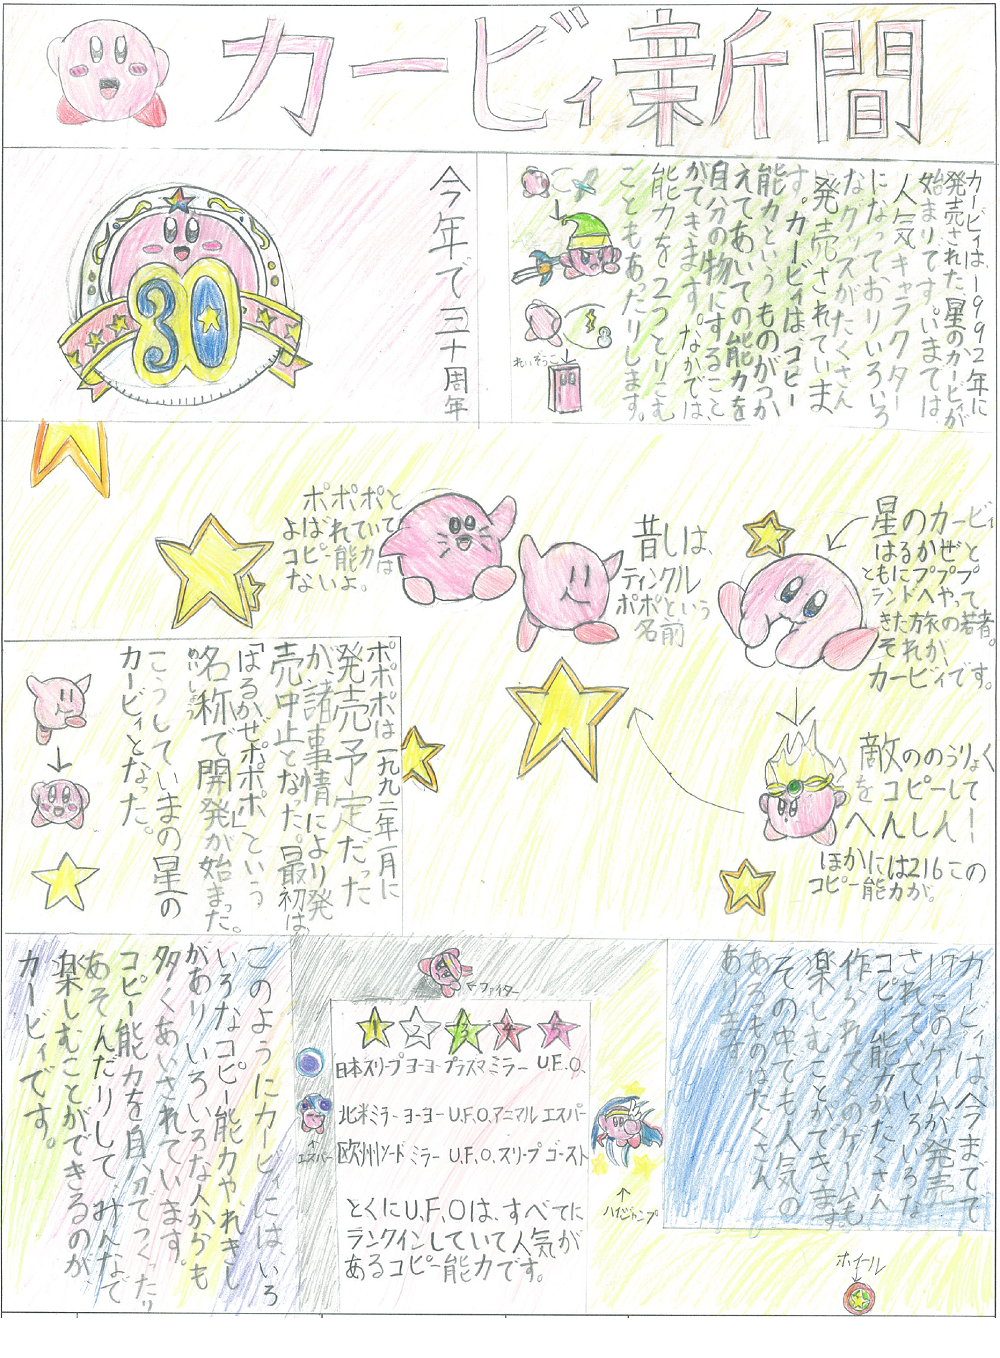 カービィ新聞
カービィは、1992年に
発売された星のカービィが
始まりです。いまでは
人気キャラクター
になっており、いろいろ
なグッズがたくさん
発売されていま
す。カービィは、コピー
能力というものがつか
えてあいての能力を
自分の物にすること
ができます。なかでは
能力を2つとりこむ
こともあったりします。
れいぞうこ
今年で三十周年
30
星のカービィ
はるかぜと
ともにプププ
ランドへやって
きた旅の若者。
それが、
カービィです。
昔しは、
ティンクル
ポポという
名前
ポポポと
よばれていて
コピー能力は
ないよ。
敵ののうりょく
をコピーして
へんしん
ほかには216この
コピー能力が。
ポポポは一九九二年一月に
発売予定だった
が、諸事情により発
売中止となった。最初は、
「はるかぜポポポ」という
名称で開発が始まった。
めいしょう
こうしていまの星の
カービィとなった。
カービィは、今までで
17このゲームが発売
されていていろいろな
コピー能力がたくさん
作られてどのゲームも
楽しむことができます。
その中でも人気の
あるものはたくさん
あります。
ファイター
1 2 3 4 5
日本スリープ ヨーヨー プラズマ ミラー U.F.O.
北米ミラー ヨーヨー U.F.O.アニマル エスパー
欧州ソード ミラー U.F.O.スリープ ゴースト
とくにU.F.Oは、すべてに
ランクインしていて人気が
あるコピー能力です。
エスパー
ハイジャンプ
ホイール
このようにカービィには、いろ
いろなコピー能力や、れきし
があり、いろいろな人からも
多くあいされています。
コピー能力を自分でつくったり
あそんだりして、みんなで
楽しむことができるのが、
カービィです。